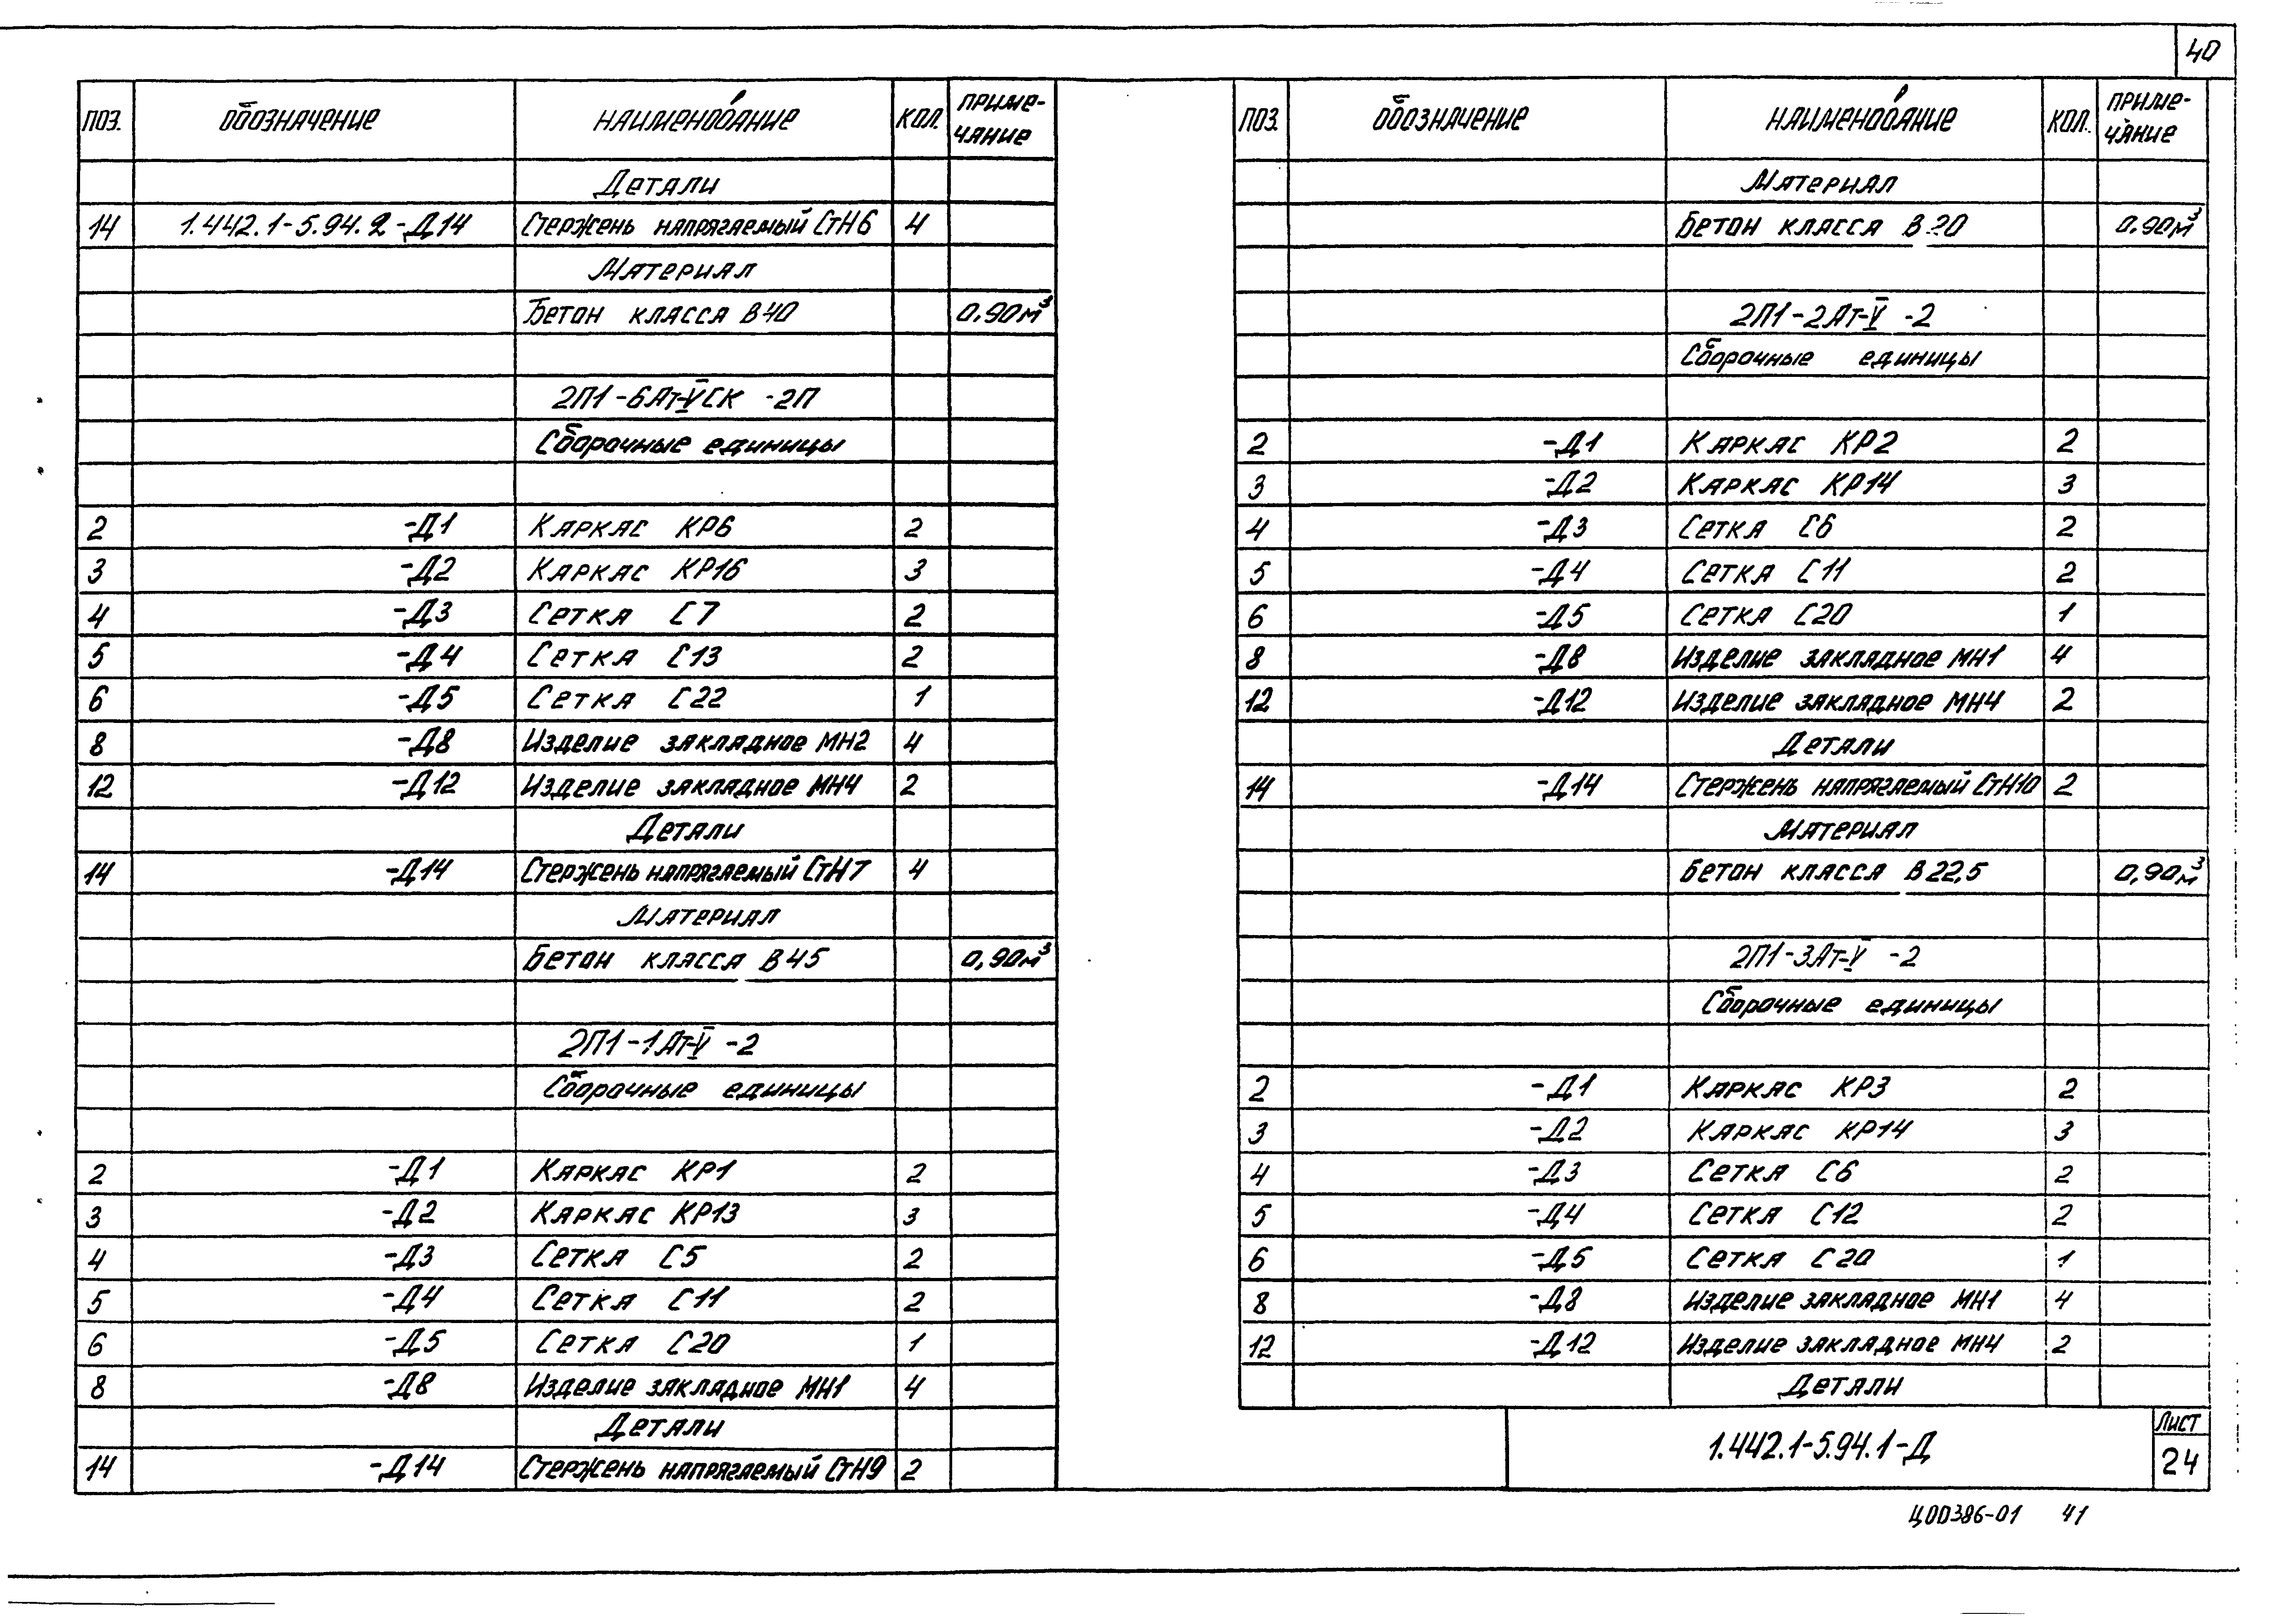 40
ПОЗ. ОБОЗНАЧЕНИЕ НАИМЕНОВАНИЕ КОЛ. ПРИМЕ-
ЧАНИЕ
Детали
14 1.442.1-5.94.2-Д14 Стержень напрягаемый СтН6 4
Материал
Бетон класса В40 0.90м³
2П1-6Ат-VСК -2П
Сборочные единицы
2 -Д1 Каркас КР6 2
3 -Д2 Каркас КР16 3
4 -Д3 Сетка С7 2
5 -Д4 Сетка С13 2
6 -Д5 Сетка С22 1
8 -Д8 Изделие закладное МН2 4
12 -Д12 Изделие закладное МН4 2
Детали
14 -Д14 Стержень напрягаемый СтН7 4
Материал
Бетон класса В45 0,90м³
2П1-1Ат-V -2
Сборочные единицы
2 -Д1 Каркас КР1 2
3 -Д2 Каркас КР13 3
4 -Д3 Сетка С5 2
5 -Д4 Сетка С11 2
6 -Д5 Сетка С20 1
8 -Д8 Изделие закладное МН1 4
Детали
14 -Д14 Стержень напрягаемый СтН9 2
ПОЗ. ОБОЗНАЧЕНИЕ НАИМЕНОВАНИЕ КОЛ. ПРИМЕ-
ЧАНИЕ
Материал
Бетон класса В 20 0.90м³
2П1-2Ат-V -2
Сборочные единицы
2 -Д1 Каркас КР2 2
3 -Д2 Каркас КР14 3
4 -Д3 Сетка С6 2
5 -Д4 Сетка С11 2
6 -Д5 Сетка С20 1
8 -Д8 Изделие закладное МН1 4
12 -Д12 Изделие закладное МН4 2
Детали
14 -Д14 Стержень напрягаемый СтН10 2
Материал
Бетон класса В22,5 0,90м³
2П1-3Ат-V -2
Сборочные единицы
2 -Д1 Каркас КР3 2
3 -Д2 Каркас КР14 3
4 -Д3 Сетка С6 2
5 -Д4 Сетка С12 2
6 -Д5 Сетка С20 1
8 -Д8 Изделие закладное МН1 4
12 -Д12 Изделие закладное МН4 2
Детали
1.442.1-5.94.1-Д
Лист
24
Ц00386-01 41